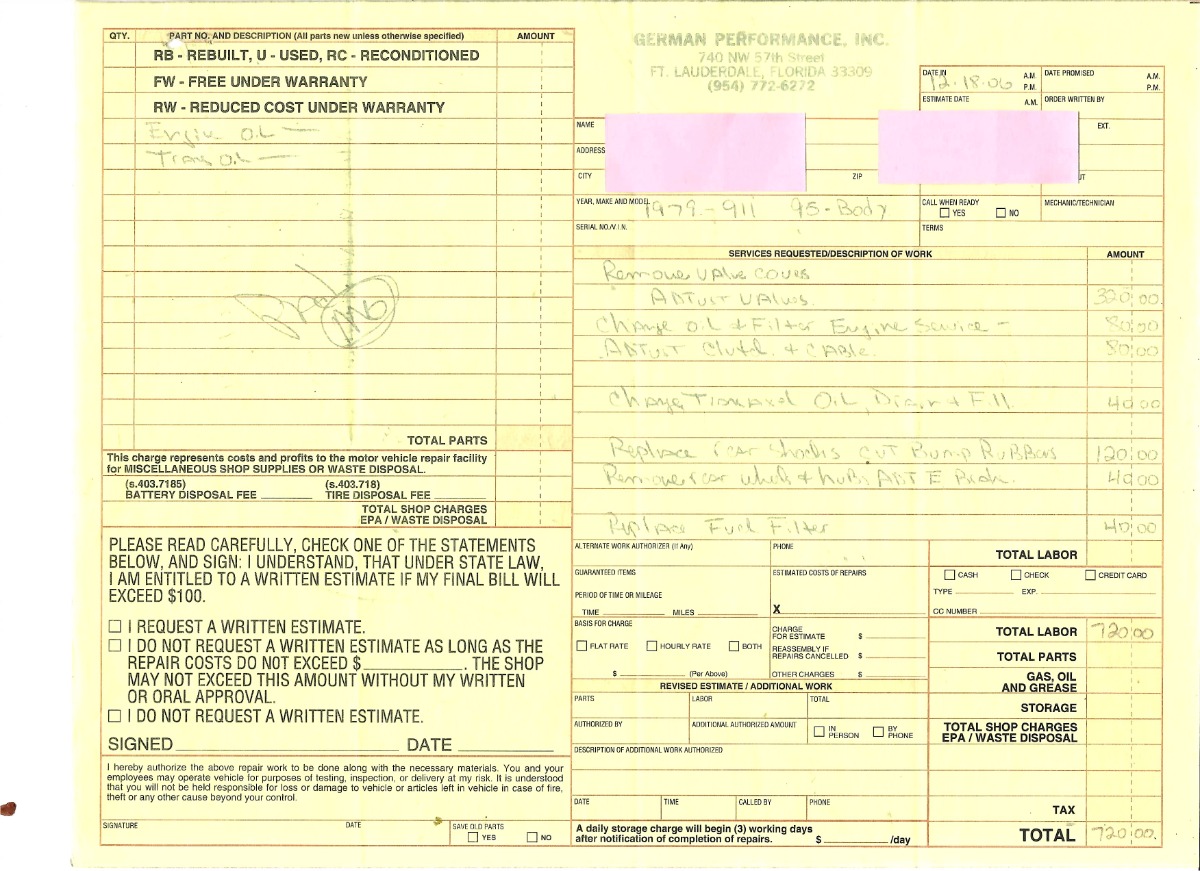 QTY. PART NO. AND DESCRIPTION (All parts new unless otherwise specified) AMOUNT
RB - REBUILT, U - USED, RC - RECONDITIONED
FW - FREE UNDER WARRANTY
RW - REDUCED COST UNDER WARRANTY
Engin OIL —
Trans OIL —
TOTAL PARTS
This charge represents costs and profits to the motor vehicle repair facility
for MISCELLANEOUS SHOP SUPPLIES OR WASTE DISPOSAL.
(s.403.7185) (s.403.718)
BATTERY DISPOSAL FEE TIRE DISPOSAL FEE
TOTAL SHOP CHARGES
EPA / WASTE DISPOSAL
PLEASE READ CAREFULLY, CHECK ONE OF THE STATEMENTS
BELOW, AND SIGN: I UNDERSTAND, THAT UNDER STATE LAW,
I AM ENTITLED TO A WRITTEN ESTIMATE IF MY FINAL BILL WILL
EXCEED $100.
I REQUEST A WRITTEN ESTIMATE.
I DO NOT REQUEST A WRITTEN ESTIMATE AS LONG AS THE
REPAIR COSTS DO NOT EXCEED $ . THE SHOP
MAY NOT EXCEED THIS AMOUNT WITHOUT MY WRITTEN
OR ORAL APPROVAL.
I DO NOT REQUEST A WRITTEN ESTIMATE.
SIGNED DATE
I hereby authorize the above repair work to be done along with the necessary materials. You and your
employees may operate vehicle for purposes of testing, inspection, or delivery at my risk. It is understood
that you will not be held responsible for loss or damage to vehicle or articles left in vehicle in case of fire,
theft or any other cause beyond your control.
SIGNATURE DATE SAVE OLD PARTS
YES NO
GERMAN PERFORMANCE, INC.
740 NW 57th Street
FT. LAUDERDALE, FLORIDA 33309
(954) 772-6272
DATE IN 12-18-06 A.M. P.M. DATE PROMISED A.M. P.M.
ESTIMATE DATE A.M. ORDER WRITTEN BY
NAME EXT.
ADDRESS
CITY ZIP
YEAR, MAKE AND MODEL 1979-911 95-Body CALL WHEN READY YES NO MECHANIC/TECHNICIAN
SERIAL NO./V.I.N. TERMS
SERVICES REQUESTED/DESCRIPTION OF WORK AMOUNT
Remove valve Covers
Valves. 320 00
Change oil & Filter Engine Service - 80 00
Clutch & CABLE. 80 00
Change OIL, Drain & Fill 40 00
Replace rear shocks CUT Bump RuBBers 120 00
Remove rear wheels & huBs 40 00
Replace Fuel Filter 40 00
ALTERNATE WORK AUTHORIZER (If Any) PHONE TOTAL LABOR
GUARANTEED ITEMS ESTIMATED COSTS OF REPAIRS CASH CHECK CREDIT CARD
PERIOD OF TIME OR MILEAGE TYPE EXP.
TIME MILES X CC NUMBER
BASIS FOR CHARGE CHARGE FOR ESTIMATE $ TOTAL LABOR 720 00
FLAT RATE HOURLY RATE BOTH REASSEMBLY IF REPAIRS CANCELLED $ TOTAL PARTS
$ (Per Above) OTHER CHARGES $ GAS, OIL AND GREASE
REVISED ESTIMATE / ADDITIONAL WORK
PARTS LABOR TOTAL STORAGE
AUTHORIZED BY ADDITIONAL AUTHORIZED AMOUNT IN PERSON BY PHONE TOTAL SHOP CHARGES EPA / WASTE DISPOSAL
DESCRIPTION OF ADDITIONAL WORK AUTHORIZED
DATE TIME CALLED BY PHONE TAX
A daily storage charge will begin (3) working days
after notification of completion of repairs. $ /day TOTAL 720 00